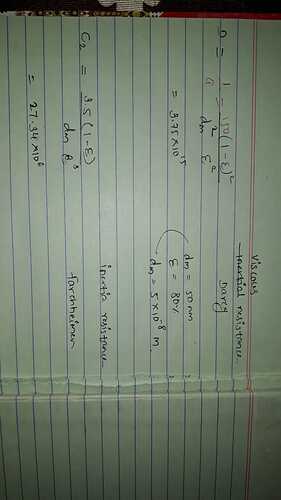 Viscous
Inertial resistance
D = 1/α = 150(1-ε)² / dm² ε² Darcy
= 3.75×10¹⁵
dm = 50nm
ε = 80%
dm = 5×10⁻⁸ m
inertia resistance
C₂ = 3.5(1-ε) / dm ε³ forchheimer
= 27.34×10⁶